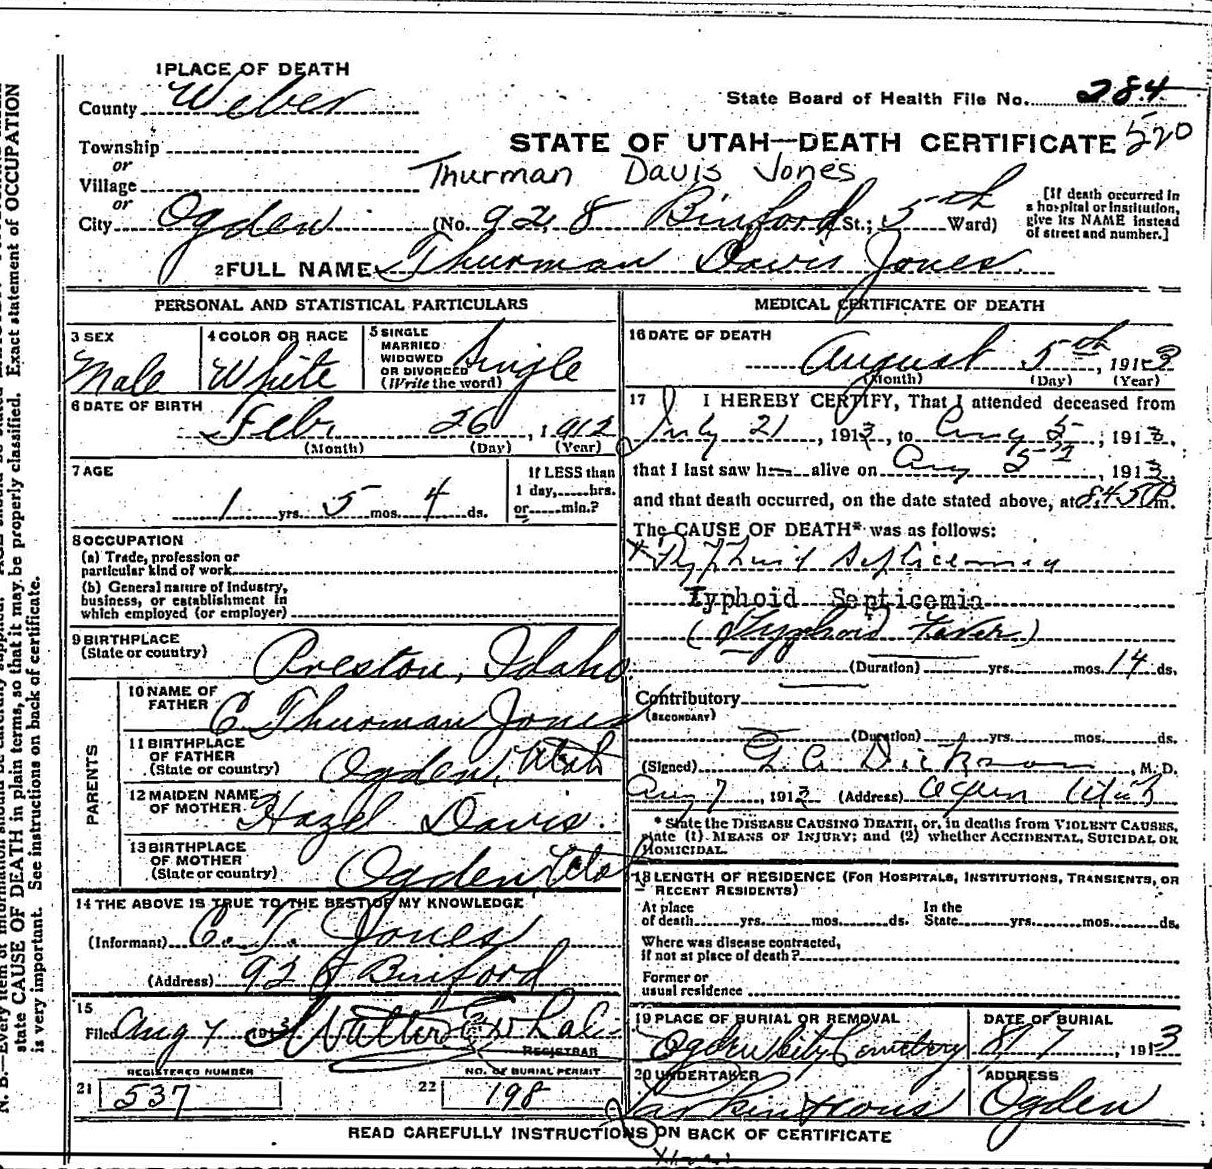 1 PLACE OF DEATH
County Weber
State Board of Health File No. 284
Township
or
STATE OF UTAH—DEATH CERTIFICATE 520
Village
Thurman Davis Jones
or
City Ogden (No. 928 Binford St.; 5th Ward)
[If death occurred in a hospital or institution, give its NAME instead of street and number.]
2 FULL NAME Thurman Davis Jones
PERSONAL AND STATISTICAL PARTICULARS
3 SEX
Male
4 COLOR OR RACE
White
5 SINGLE
MARRIED
WIDOWED
OR DIVORCED
(Write the word)
Single
6 DATE OF BIRTH
Febr 26, 1912
(Month) (Day) (Year)
7 AGE
1 yrs. 5 mos. 4 ds.
If LESS than
1 day, hrs.
or min.?
8 OCCUPATION
(a) Trade, profession or
particular kind of work
(b) General nature of Industry,
business, or establishment in
which employed (or employer)
9 BIRTHPLACE
(State or country)
Preston, Idaho
PARENTS
10 NAME OF
FATHER
C Thurman Jones
11 BIRTHPLACE
OF FATHER
(State or country)
Ogden, Utah
12 MAIDEN NAME
OF MOTHER
Hazel Davis
13 BIRTHPLACE
OF MOTHER
(State or country)
Ogden, Utah
14 THE ABOVE IS TRUE TO THE BEST OF MY KNOWLEDGE
(Informant) C. T. Jones
(Address) 928 Binford
15
Filed Aug 7 1913 Walter
REGISTRAR
REGISTERED NUMBER
21 537
NO. OF BURIAL PERMIT
22 198
MEDICAL CERTIFICATE OF DEATH
16 DATE OF DEATH
August 5th, 1913
(Month) (Day) (Year)
17 I HEREBY CERTIFY, That I attended deceased from
July 21, 1913, to Aug 5, 1913,
that I last saw h alive on Aug 5, 1913,
and that death occurred, on the date stated above, at 8.45 P m.
The CAUSE OF DEATH* was as follows:
Typhoid Septicemia
Typhoid Septicemia
(Typhoid Fever)
(Duration) yrs. mos. 14 ds.
Contributory
(SECONDARY)
(Duration) yrs. mos. ds.
(Signed) Dickson, M. D.
Aug 7, 1913 (Address) Ogden Utah
* State the DISEASE CAUSING DEATH, or, in deaths from VIOLENT CAUSES,
state (1) MEANS OF INJURY; and (2) whether ACCIDENTAL, SUICIDAL OR
HOMICIDAL.
18 LENGTH OF RESIDENCE (FOR HOSPITALS, INSTITUTIONS, TRANSIENTS, OR
RECENT RESIDENTS)
At place
of death yrs. mos. ds.
In the
State yrs. mos. ds.
Where was disease contracted,
If not at place of death?
Former or
usual residence
19 PLACE OF BURIAL OR REMOVAL
Ogden City Cemetery
DATE OF BURIAL
8/7, 1913
20 UNDERTAKER
ADDRESS
Ogden
READ CAREFULLY INSTRUCTIONS ON BACK OF CERTIFICATE
N. B.—Every item of information should be carefully supplied.
state CAUSE OF DEATH in plain terms, so that it may be properly classified. Exact statement of OCCUPATION
is very important. See instructions on back of certificate.